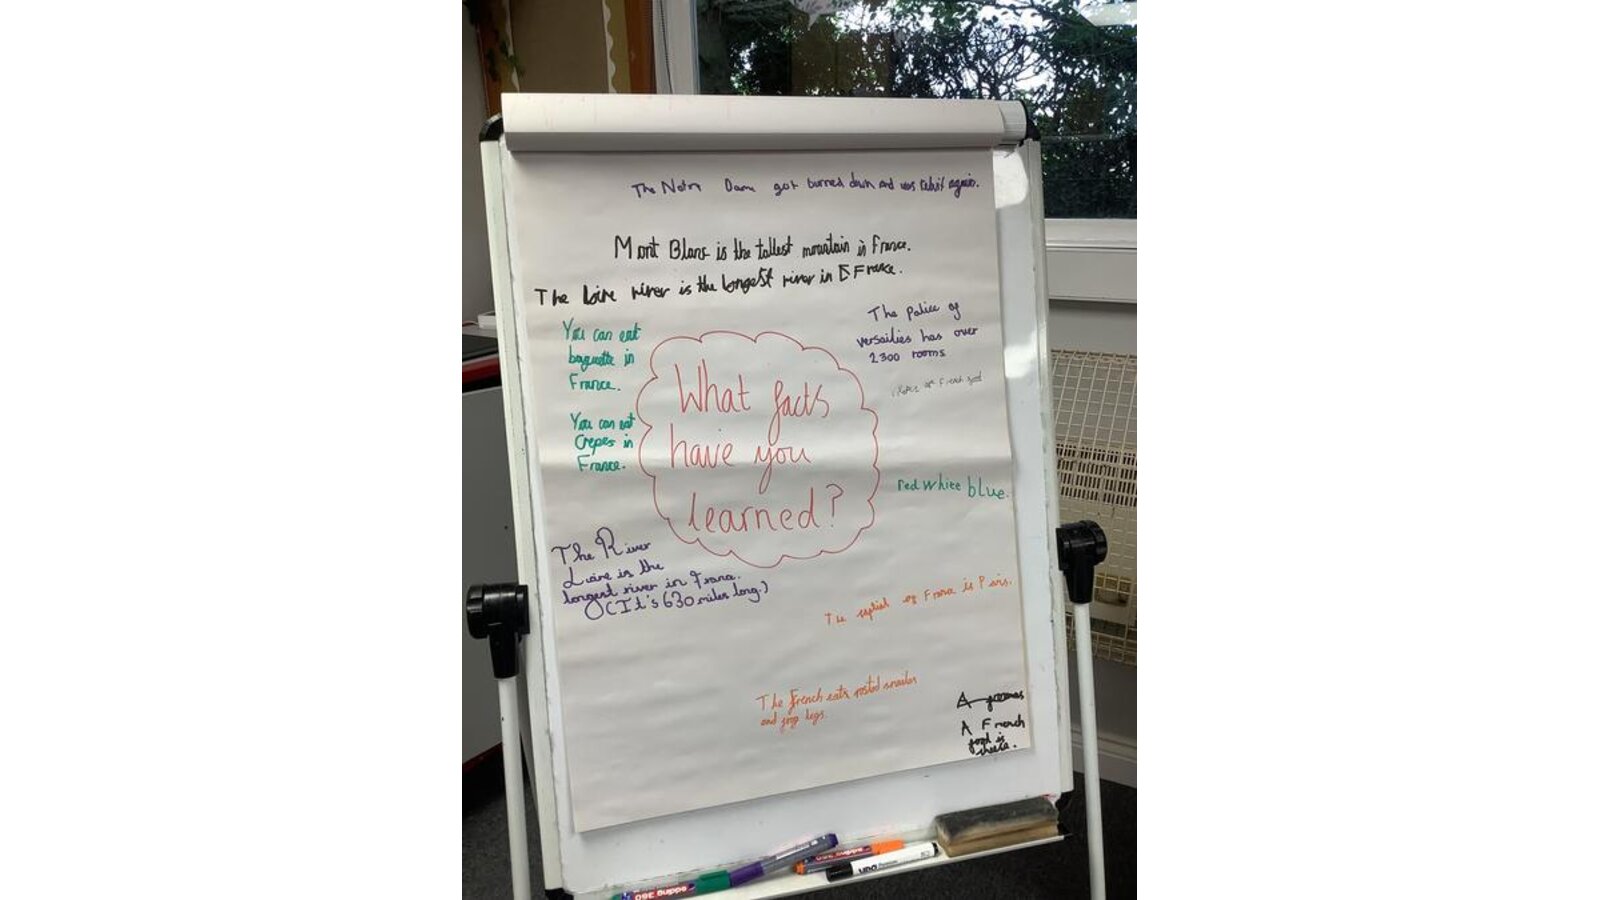 The Notre Dame got burned down and was rebuit again.
Mont Blanc is the tallest mountain in France.
The Loire river is the longest river in France.
You can eat
baguette in
France.
The Palice of
versailies has over
2300 rooms.
French food
What facts
have you
learned?
You can eat
Crepes in
France.
red white blue.
The River
Loire is the
longest river in France.
(It's 630 miles long.)
The capital of France is Paris.
The French eats
and frog legs.
A French
food is
edding 360
edding 360